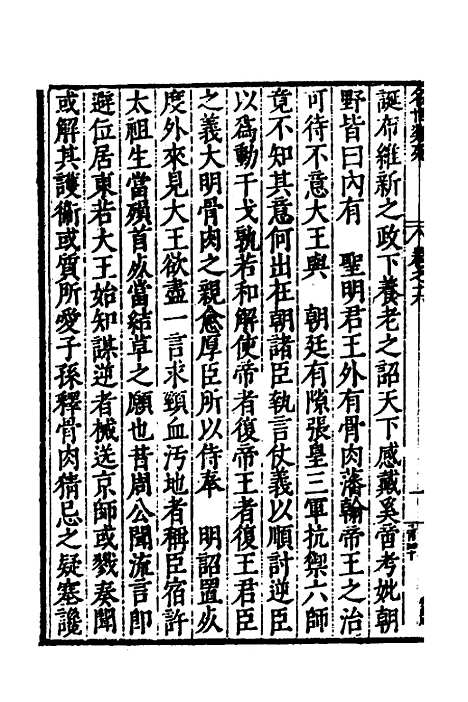 誕布維新之政下養老之詔天下感戴奚啻考妣朝
野皆曰內有　聖明君王外有骨肉藩翰帝王之治
可待不意大王與　朝廷有隙張皇三軍抗禦六師
竟不知其意何出在朝諸臣執言仗義以順討逆臣
以爲動干戈孰若和解使帝者復帝王者復王君臣
之義大明骨肉之親愈厚臣所以侍奉　明詔置死
度外來見大王欲盡一言求頸血汚地者稱臣宿許
太祖生當殞首死當結草之願也昔周公聞流言即
避位居東若大王始知謀逆者械送京師或戮奏聞
或解其護衛或質所愛子孫釋骨肉猜忌之疑塞讒